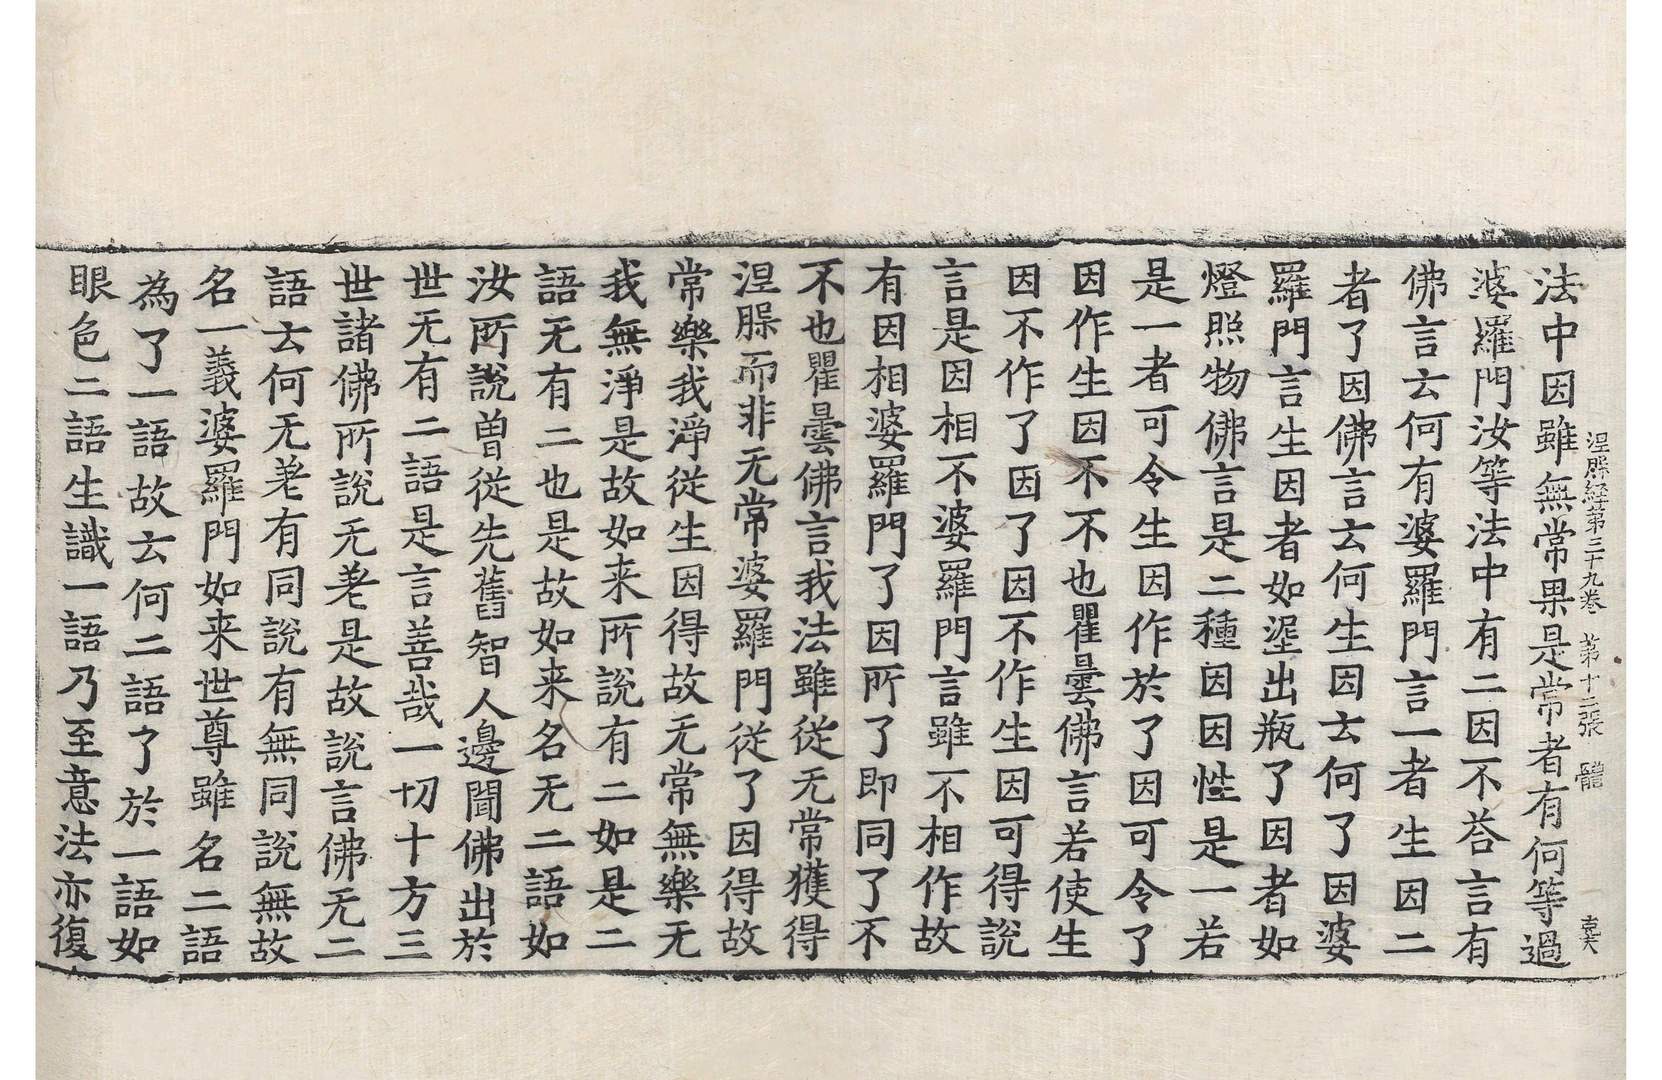 涅槃経第三十九卷 第十二張 體
法中因雖無常果是常者有何等過
婆羅門汝等法中有二因不荅言有
佛言云何有婆羅門言一者生因二
者了因佛言云何生因云何了因婆
羅門言生因者如埿出瓶了因者如
燈照物佛言是二種因因性是一若
是一者可令生因作於了因可令了
因作生因不不也瞿曇佛言若使生
因不作了因了因不作生因可得說
言是因相不婆羅門言雖不相作故
有因相婆羅門了因所了即同了不
不也瞿曇佛言我法雖従无常獲得
涅槃而非无常婆羅門従了因得故
常樂我淨従生因得故无常無樂无
我無淨是故如来所說有二如是二
語无有二也是故如来名无二語如
汝所說曽従先舊智人邊聞佛出於
世无有二語是言善哉一切十方三
世諸佛所說无差是故說言佛无二
語云何无差有同說有無同說無故
名一義婆羅門如来世尊雖名二語
為了一語故云何二語了於一語如
眼色二語生識一語乃至意法亦復